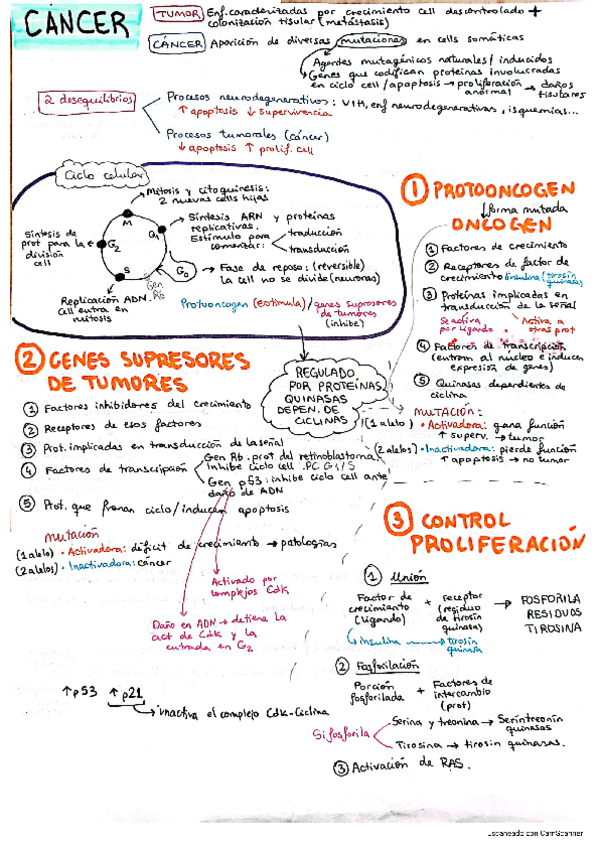 CÁNCER
TUMOR Enf. caracterizadas por crecimiento cell descontrolado +
colonización tisular (metástasis)
CÁNCER Aparición de diversas mutaciones en cells somáticas
Agentes mutagénicos naturales/inducidos
Genes que codifican proteínas involucradas
en ciclo cell/apoptosis → proliferación anormal → daños tisulares
2 desequilibrios
Procesos neurodegenerativos: VIH, enf neurodegenerativas, isquemias...
↑ apoptosis ↓ supervivencia
Procesos tumorales (cáncer)
↓ apoptosis ↑ prolif. cell
Ciclo celular
Mitosis y citoquinesis:
2 nuevas cells hijas
M
G1
G2
S
G0
Gen
Rb
Síntesis de
prot para la
división
cell
Síntesis ARN y proteínas
replicativas.
Estímulo para
comenzar:
traducción
transducción
Fase de reposo: (reversible)
la cell no se divide (neuronas)
Replicación ADN.
Cell entra en
mitosis
Protooncogen (estimula) / genes supresores
de tumores
(inhibe)
REGULADO
POR PROTEÍNAS
QUINASAS
DEPEN. DE
CICLINAS
① PROTOONCOGEN
(forma mutada
ONCOGEN
① Factores de crecimiento
② Receptores de factor de
crecimiento insulina (tirosin
quinasa)
③ Proteínas implicadas en
transducción de la señal
Se activa
por ligando
Activa a
otras prot
④ Factores de transcripción
(entran al núcleo e inducen
expresión de genes)
⑤ Quinasas dependientes de
ciclina
MUTACIÓN:
(1 alelo) • Activadora: gana función
↑ superv. → tumor
(2 alelos) • Inactivadora: pierde función
↑ apoptosis → no tumor
② GENES SUPRESORES
DE TUMORES
① Factores inhibidores del crecimiento
② Receptores de esos factores
③ Prot. implicadas en transducción de la señal
④ Factores de transcripción
Gen Rb. prot del retinoblastoma.
Inhibe ciclo cell. PC G1/S
Gen p53: inhibe ciclo cell ante
daño de ADN
⑤ Prot. que frenan ciclo/inducen apoptosis
Mutación
(1 alelo) • Activadora: déficit de crecimiento → patologías
(2 alelos) • Inactivadora: cáncer
Activado por
complejos Cdk
Daño en ADN → detiene la
act de Cdk y la
entrada en G2
↑p53 ↑p21
inactiva el complejo Cdk-Ciclina
③ CONTROL
PROLIFERACIÓN
① Unión
Factor de
crecimiento
(ligando)
+ receptor
(residuo
de tirosin
quinasa)
→ FOSFORILA
RESIDUOS
TIROSINA
insulina → tirosin
quinasa
② Fosforilación
Porción
fosforilada
+ Factores de
intercambio
(prot)
Si fosforila
Serina y treonina → Serintreonín
quinasas
Tirosina → tirosin quinasas.
③ Activación de RAS.
Escaneado con CamScanner